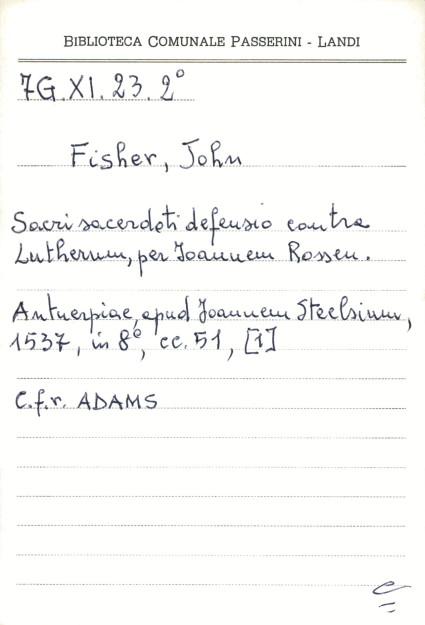 BIBLIOTECA COMUNALE PASSERINI - LANDI
7G.XI.23.2°
Fisher, John
Sacri sacerdoti defensio contra
Lutherum, per Joannem Rossen.
Antuerpiae, apud Joannem Steelsium,
1537, in 8°, cc. 51, [1]
C.f.r. ADAMS